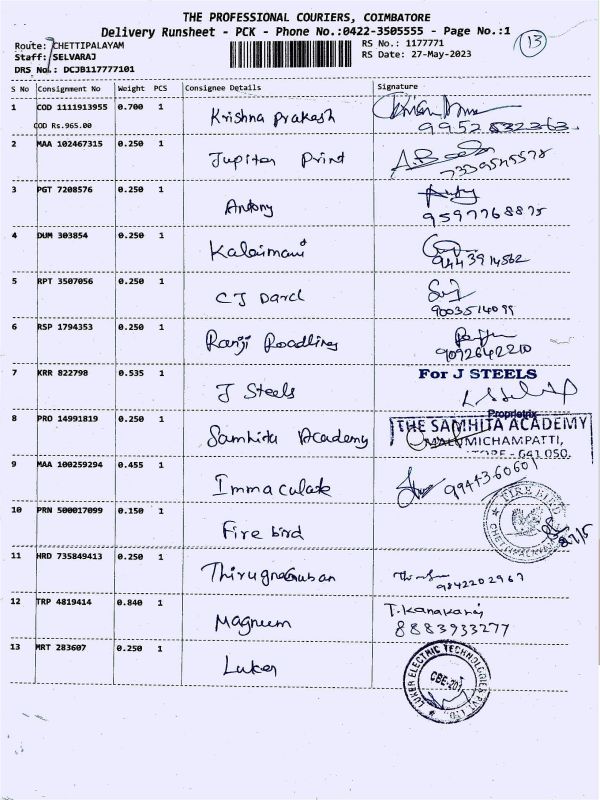 THE PROFESSIONAL COURIERS, COIMBATORE
Delivery Runsheet - PCK - Phone No.:0422-3505555 - Page No.:1
Route: CHETTIPALAYAM
RS No.: 1177771
13
Staff: SELVARAJ
RS Date: 27-May-2023
DRS No.: DCJB117777101
S No Consignment No Weight PCS Consignee Details Signature
1 COD 1111913955 0.700 1 Krishna prakash
COD Rs.965.00
9952 832363
2 MAA 102467315 0.250 1 Jupiter Print
7339545578
3 PGT 7208576 0.250 1 Antony
9597768875
4 DUM 303854 0.250 1 Kalaimani
9443914562
5 RPT 3507056 0.250 1 CJ Darcl
9003514099
6 RSP 1794353 0.250 1 Ranji Roadlines
9092642210
7 KRR 822798 0.535 1 J Steels For J STEELS
Proprietrix
8 PRO 14991819 0.250 1 Samhita Academy THE SAMHITA ACADEMY
MALUMICHAMPATTI,
641 050.
9 MAA 100259294 0.455 1 Immaculate 9944360601
10 PRN 500017099 0.150 1 Fire bird FIRE BIRD
11 HRD 735849413 0.250 1 9842202967
12 TRP 4819414 0.840 1 Magnum T. Kanakaraj
8883933277
13 MRT 283607 0.250 1 Luker LUKER ELECTRIC TECHNOLOGIES PVT LTD